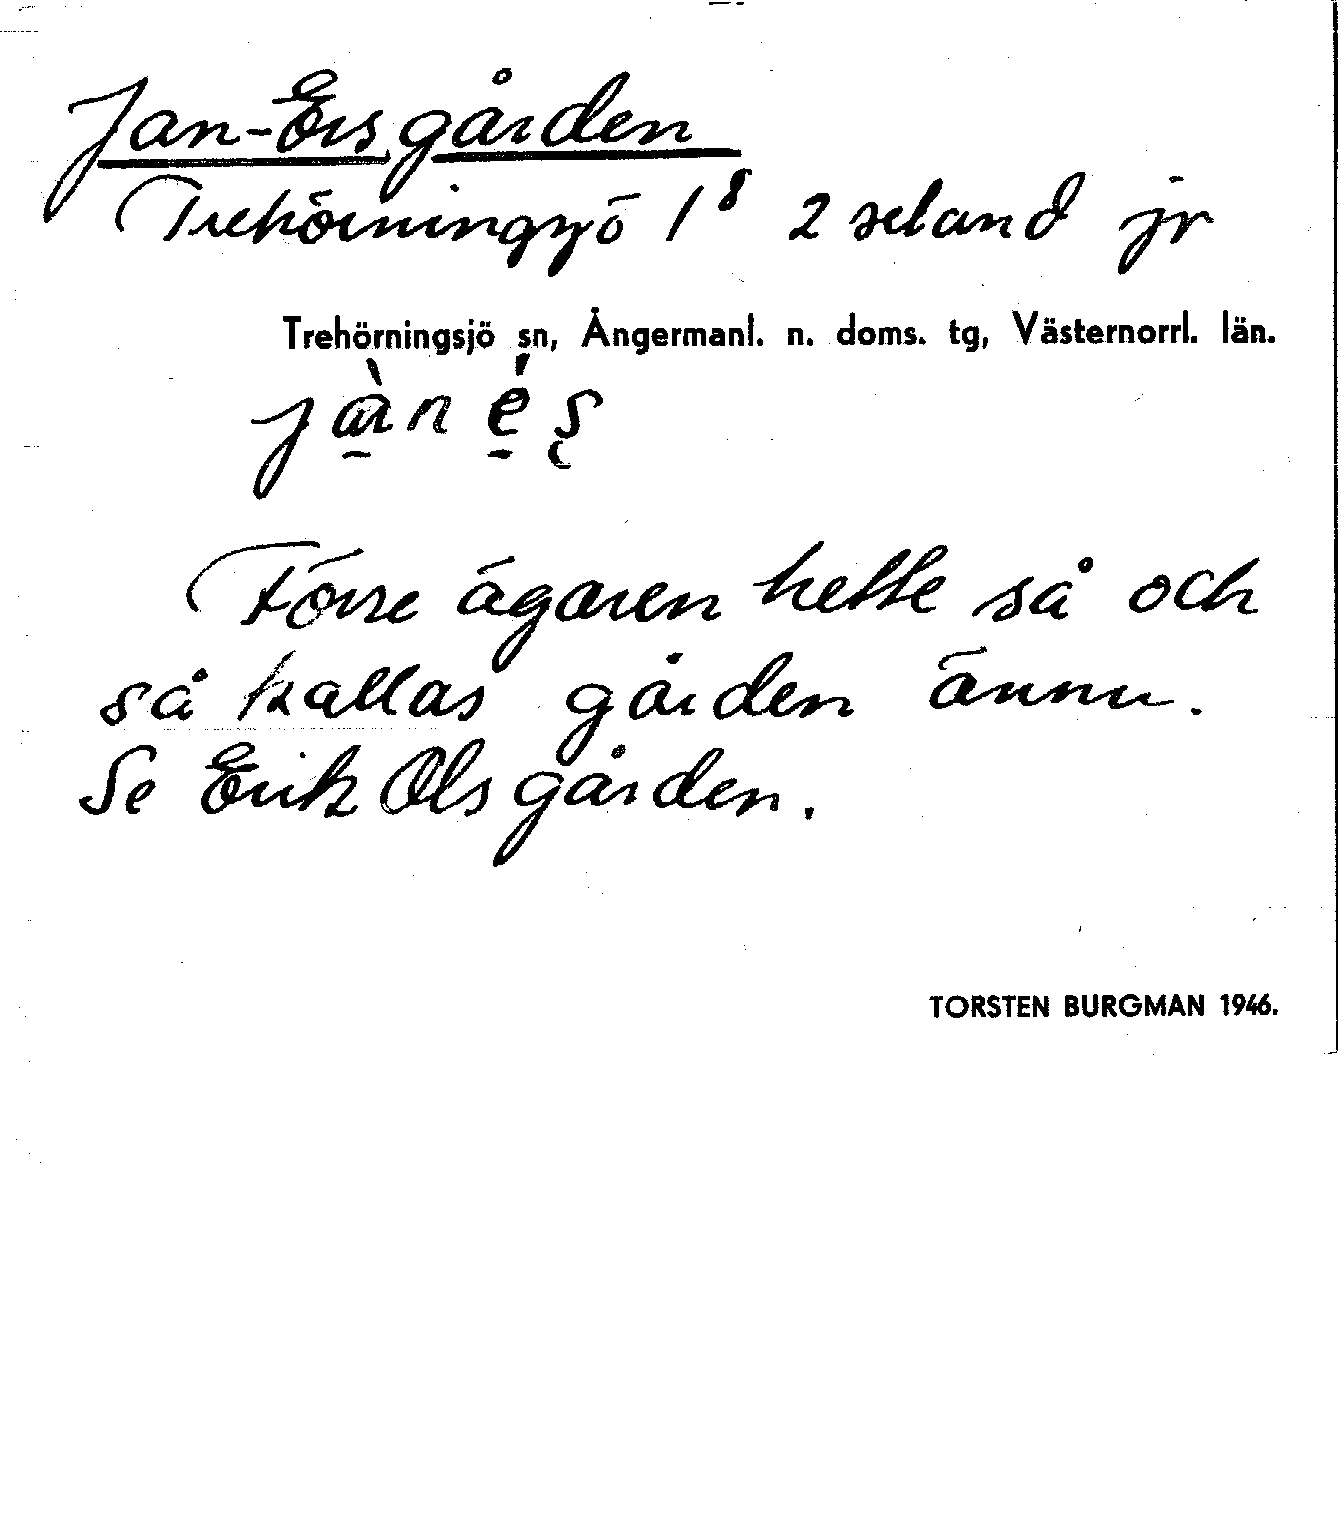 Jan-Ersgården
Trehörningsjö 1⁸ 2 seland jr
Trehörningsjö sn, Ångermanl. n. doms. tg, Västernorrl. län.
Förre ägaren hette så och
så kallas gården ännu.
Se Erik Olsgården.
TORSTEN BURGMAN 1946.